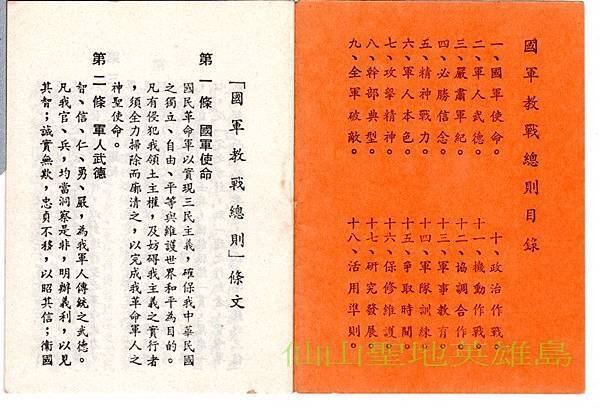 國軍教戰總則目錄
一、國軍使命。
二、軍人武德。
三、嚴肅軍紀。
四、必勝信念。
五、精神戰力。
六、軍人本色。
七、攻擊精神。
八、幹部典型。
九、全軍破敵。
十、政治作戰。
十一、機動作戰。
十二、協調合作。
十三、軍事教育。
十四、軍隊訓練。
十五、爭取時間。
十六、保修維護。
十七、研究發展。
十八、活用準則。
「國軍教戰總則」條文
第一條 國軍使命
國民革命軍以實現三民主義，確保我中華民國
之獨立、自由、平等與維護世界和平為目的。
凡有侵犯我領土主權，及妨碍我主義之實行者
，須全力掃除而廓清之，以完成我革命軍人之
神聖使命。
第二條 軍人武德
智、信、仁、勇、嚴，為我軍人傳統之武德。
凡我官、兵，均當洞察是非，明辦義利，以見
其智；誠實無欺，忠貞不移，以昭其信；衛國
仙山聖地英雄島